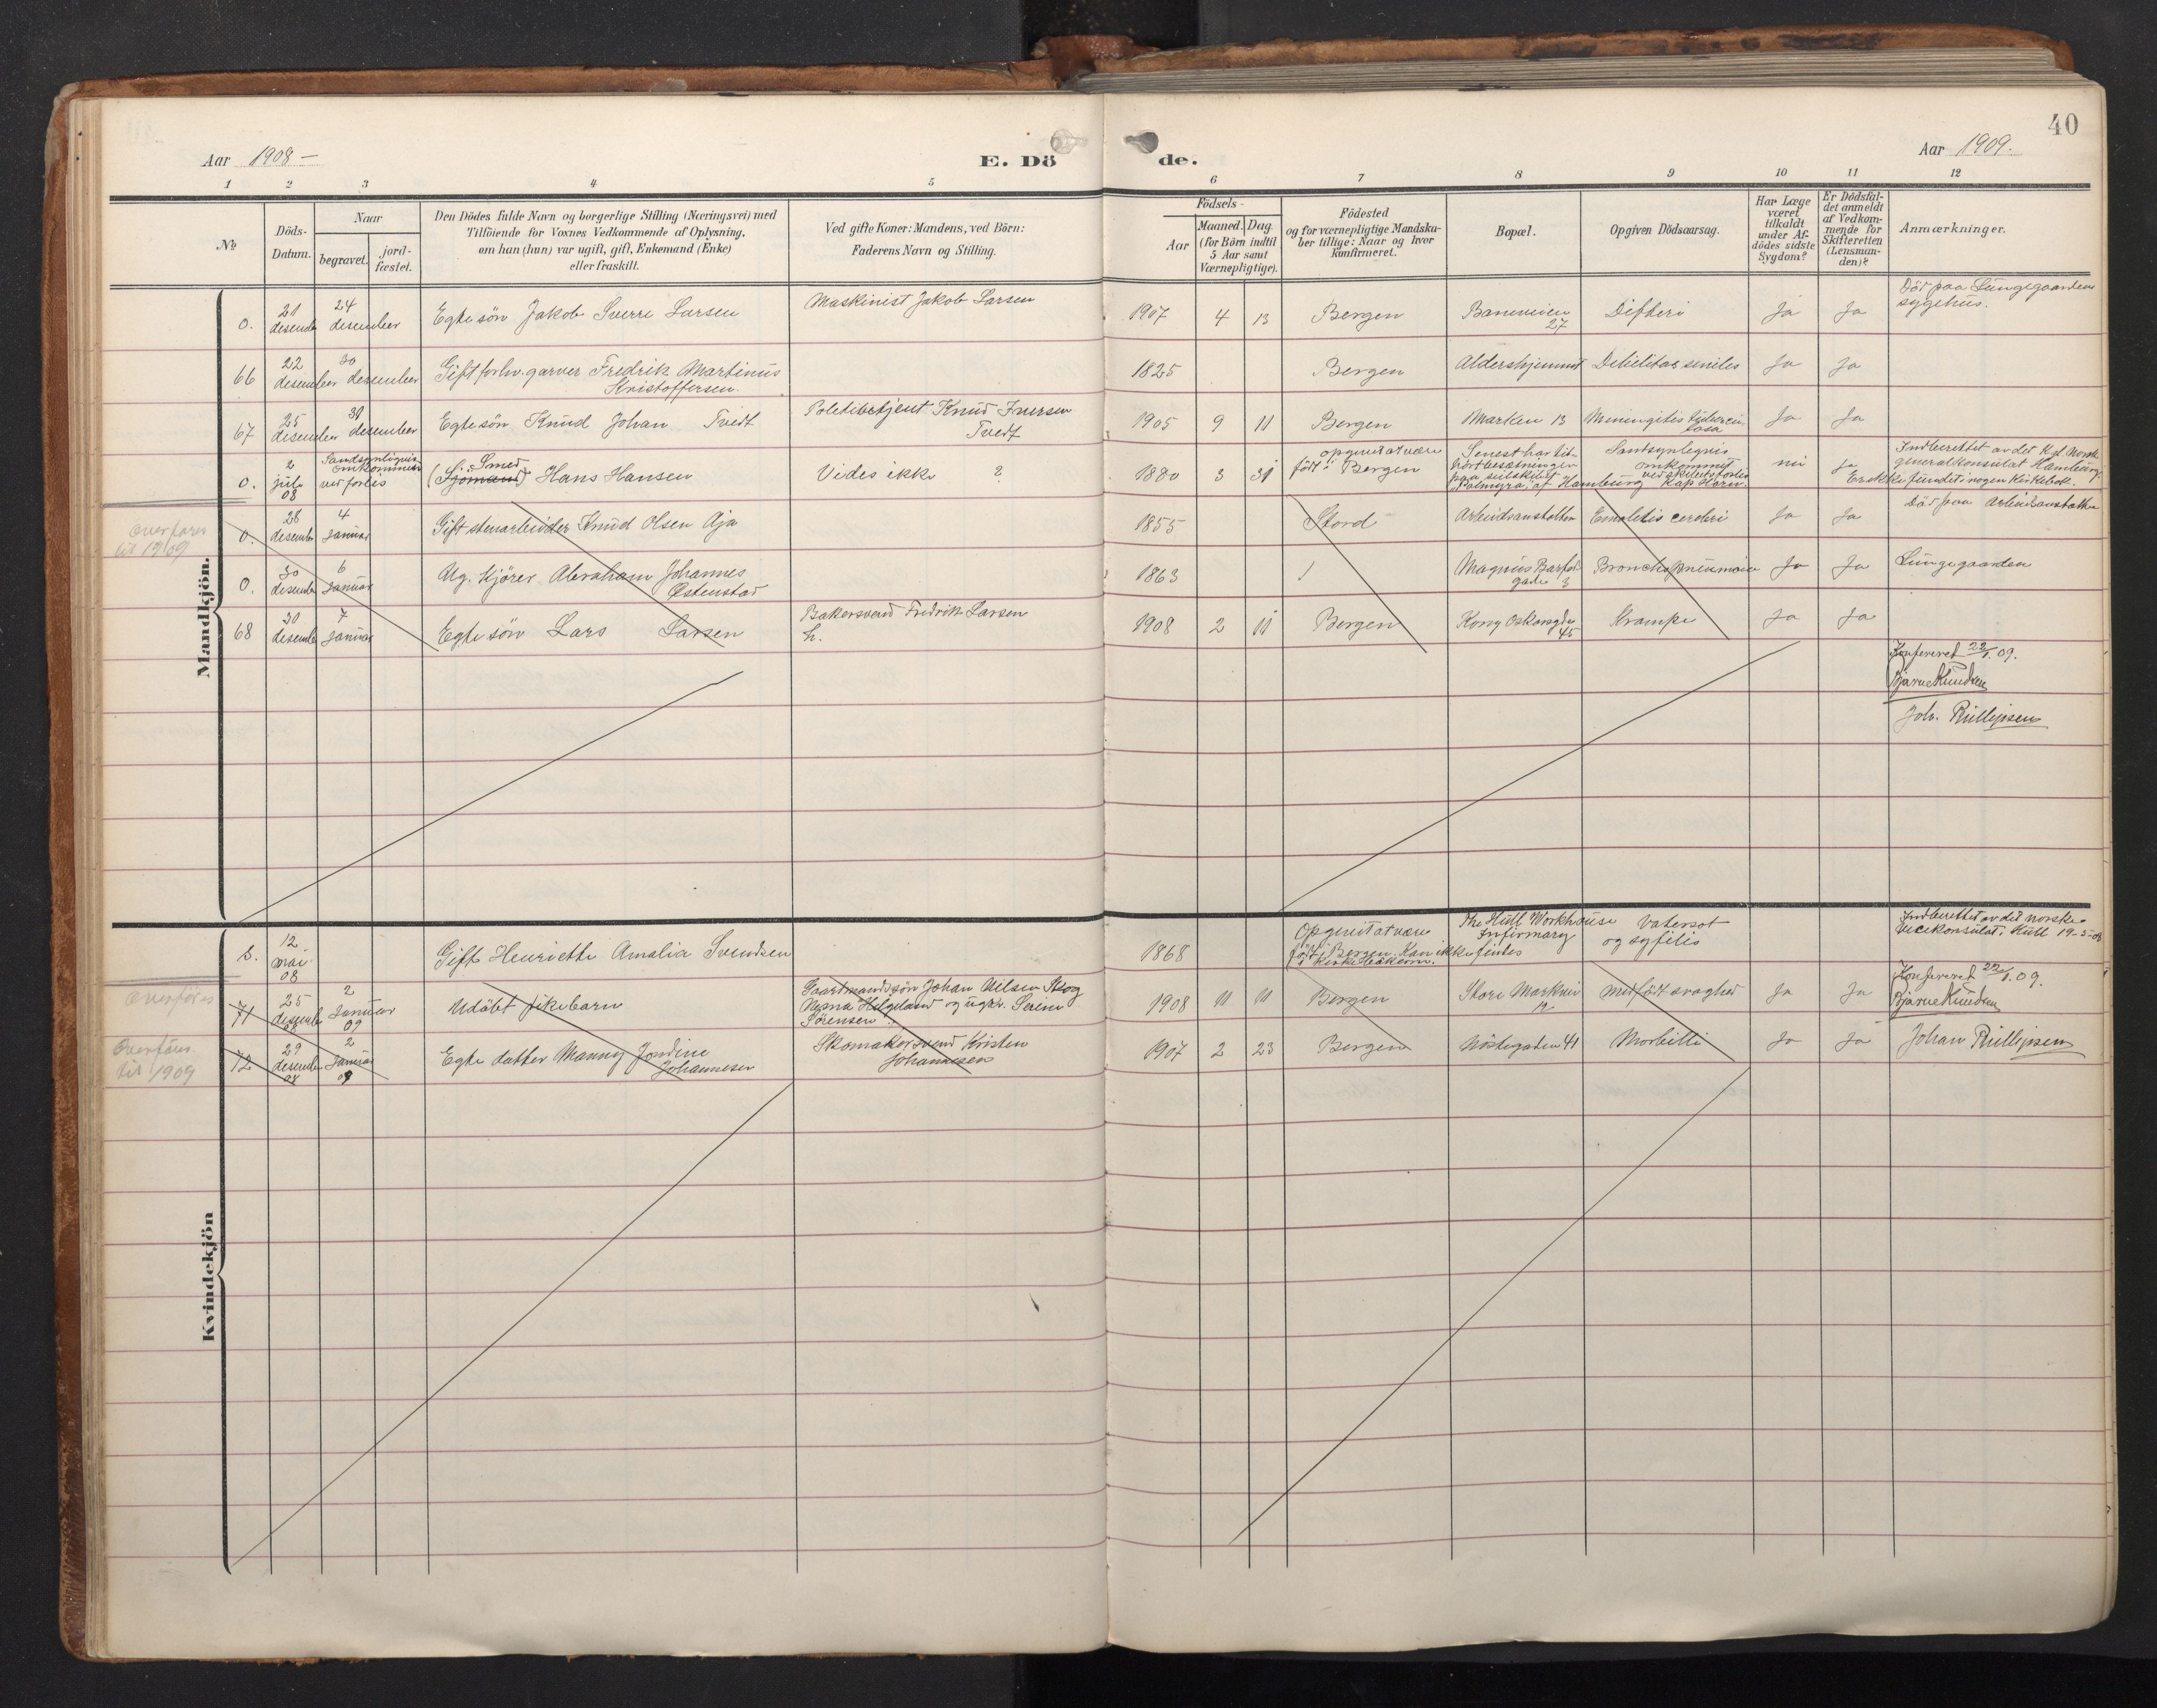 Aar 1908 —
E. Dö
de.
Aar 1909.
40
1 2 3 4 5 6 7 8 9 10 11 12
№
Döds-
Datum.
Naar
begravet.
jord-
fæstet.
Den Dödes fulde Navn og borgerlige Stilling (Næringsvei) med
Tilföiende for Voxnes Vedkommende af Oplysning,
om han (hun) var ugift, gift, Enkemand (Enke)
eller fraskilt.
Ved gifte Koner: Mandens, ved Börn:
Faderens Navn og Stilling.
Födsels-
Aar
Maaned. Dag.
(for Börn indtil
5 Aar samt
Værnepligtige).
Födested
og for værnepligtige Mandska-
ber tillige: Naar og hvor
konfirmeret.
Bopæl.
Opgiven Dödsaarsag.
Har Læge
været
tilkaldt
under Af-
dödes sidste
Sygdom?
Er Dödsfal-
det anmeldt
af Vedkom-
mende for
Skifteretten
(Lensman-
den)?
Anmærkninger.
Mandkjön.
0.
21
desember
24
desember
Egte sön Jakob Sverre Larsen
Maskinist Jakob Larsen
1907 4 13
Bergen
Baneveien
27
Difteri
Ja Ja
Död paa Lungegaardens
sygehus.
66
22
desember
30
desember
Gift forhv. garver Fredrik Martinus
Kristoffersen.
1825
Bergen
Aldershjemmet
Debilitas seniles
Ja Ja
67
25
desember
31
desember
Egte sön Knud Johan Tvedt
Politibetjent Knud Iversen
Tvedt
1905 9 11
Bergen
Marken 13
Meningitis tubercu-
losa
Ja Ja
0.
2
juli
08
Sandsynligvis
omkommen
ved forlis
Smed
(Sjömand) Hans Hansen
Vides ikke ?
1880 3 31
opgivet at være
født i Bergen
Senest har til-
hört besætningen
paa seilskibet
"Palmyra" af Hamburg
Sandsynligvis
omkommet
ved skibets forlis
Kap Horn
nei Ja
Indberettet av det Kgl. Norsk
generalkonsulat Hamburg.
Er ikke fundet i nogen Kirkebok.
Overføres
til 1909
0.
28
desember
4
Januar
Gift stenarbeider Knud Olsen Aja
1855
Stord
Arbeidsanstalten
Emoletis cerebri
Ja Ja
Död paa Arbeidsanstalten
0.
30
desember
6
Januar
Ug. kjörer Abraham Johannes
Østenstad
1863
Magnus Barfods
gade 3
Bronchopneumonie
Ja Ja
Lungegaarden
68
30
desember
7
Januar
Egte sön Lars Larsen
Bakersvend Fredrik Larsen
h.
1908 2 11
Bergen
Kong Oskarsgade
45
Krampe
Ja Ja
Konfereret 22/1. 09.
Bjarne Knudsen
Joh. Phillipsen
Kvindekjön
0.
12
mai
08
Gift Henriette Amalia Svendsen
1868
Opgivet at være
født i Bergen. Kan ikke findes
i Kirkebøkerne.
The Hull Workhouse
Infirmary
Vatersot
og syfilis
Indberettet av det norske
vicekonsulat i Hull 19-5-08
Overføres
71
25
desember
08
2
Januar
09
Udöbt pikebarn
Gaardmandssön Johan Nilsen Skog
Mana Helgeland og ugkv. Serine
Sörensen
1908 11 11
Bergen
Store Markvei
12
Medfødt svaghed
Ja Ja
Konfereret 22/1. 09.
Bjarne Knudsen
Overføres
til 1909
72
29
desember
08
2
Januar
09
Egte datter Manny Jondine
Johannesen
Skomakersvend Kristen
Johannesen
1907 2 23
Bergen
Nöstegaden 41
Morbilli
Ja Ja
Johan Phillipsen